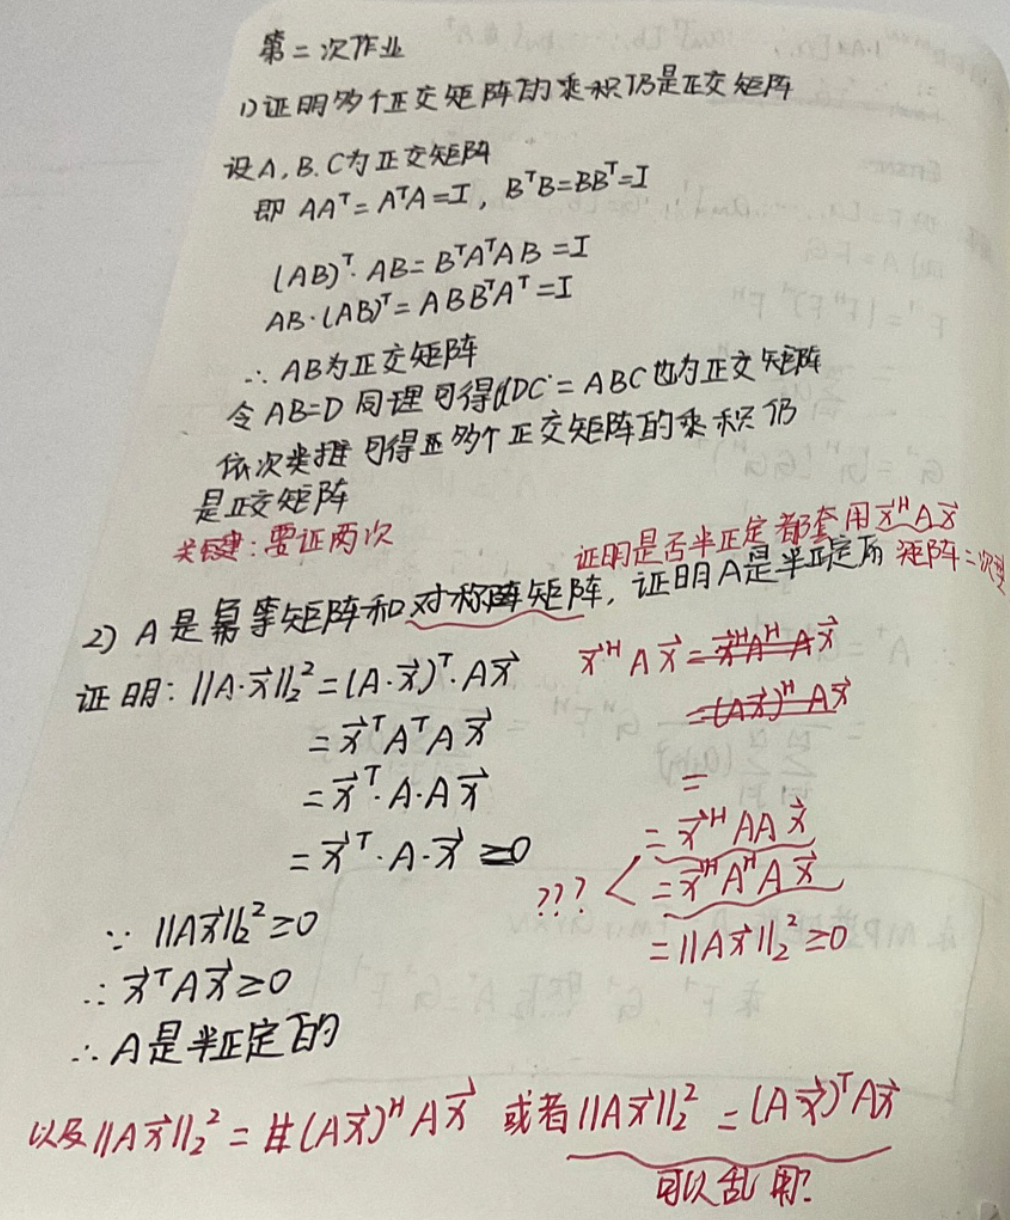 第二次作业
1)证明多个正交矩阵的乘积仍是正交矩阵
设A,B.C为正交矩阵
即 AAᵀ=AᵀA=I, BᵀB=BBᵀ=I
(AB)ᵀ·AB=BᵀAᵀAB=I
AB·(AB)ᵀ=ABBᵀAᵀ=I
∴AB为正交矩阵
令AB=D 同理可得DC=ABC也为正交矩阵
依次类推 可得多个正交矩阵的乘积仍
是正交矩阵
关键:要证两次
证明是否半正定都套用x⃗ᴴAx⃗
矩阵二次型
2) A是幂等矩阵和对称矩阵,证明A是半正定的
证明:||A·x⃗||₂²=(A·x⃗)ᵀ·Ax⃗
=x⃗ᵀAᵀAx⃗
=x⃗ᵀ·A·Ax⃗
=x⃗ᵀ·A·x⃗≥0
∵ ||Ax⃗||₂²≥0
∴x⃗ᵀAx⃗≥0
∴A是半正定的
x⃗ᴴAx⃗=x⃗ᴴAᴴAx⃗
=(Ax⃗)ᴴAx⃗
=
=x⃗ᴴAAx⃗
???
=x⃗ᴴAᴴAx⃗
=||Ax⃗||₂²≥0
以及||Ax⃗||₂²=(Ax⃗)ᴴAx⃗ 或者||Ax⃗||₂²=(Ax⃗)ᵀAx⃗
可以乱用?